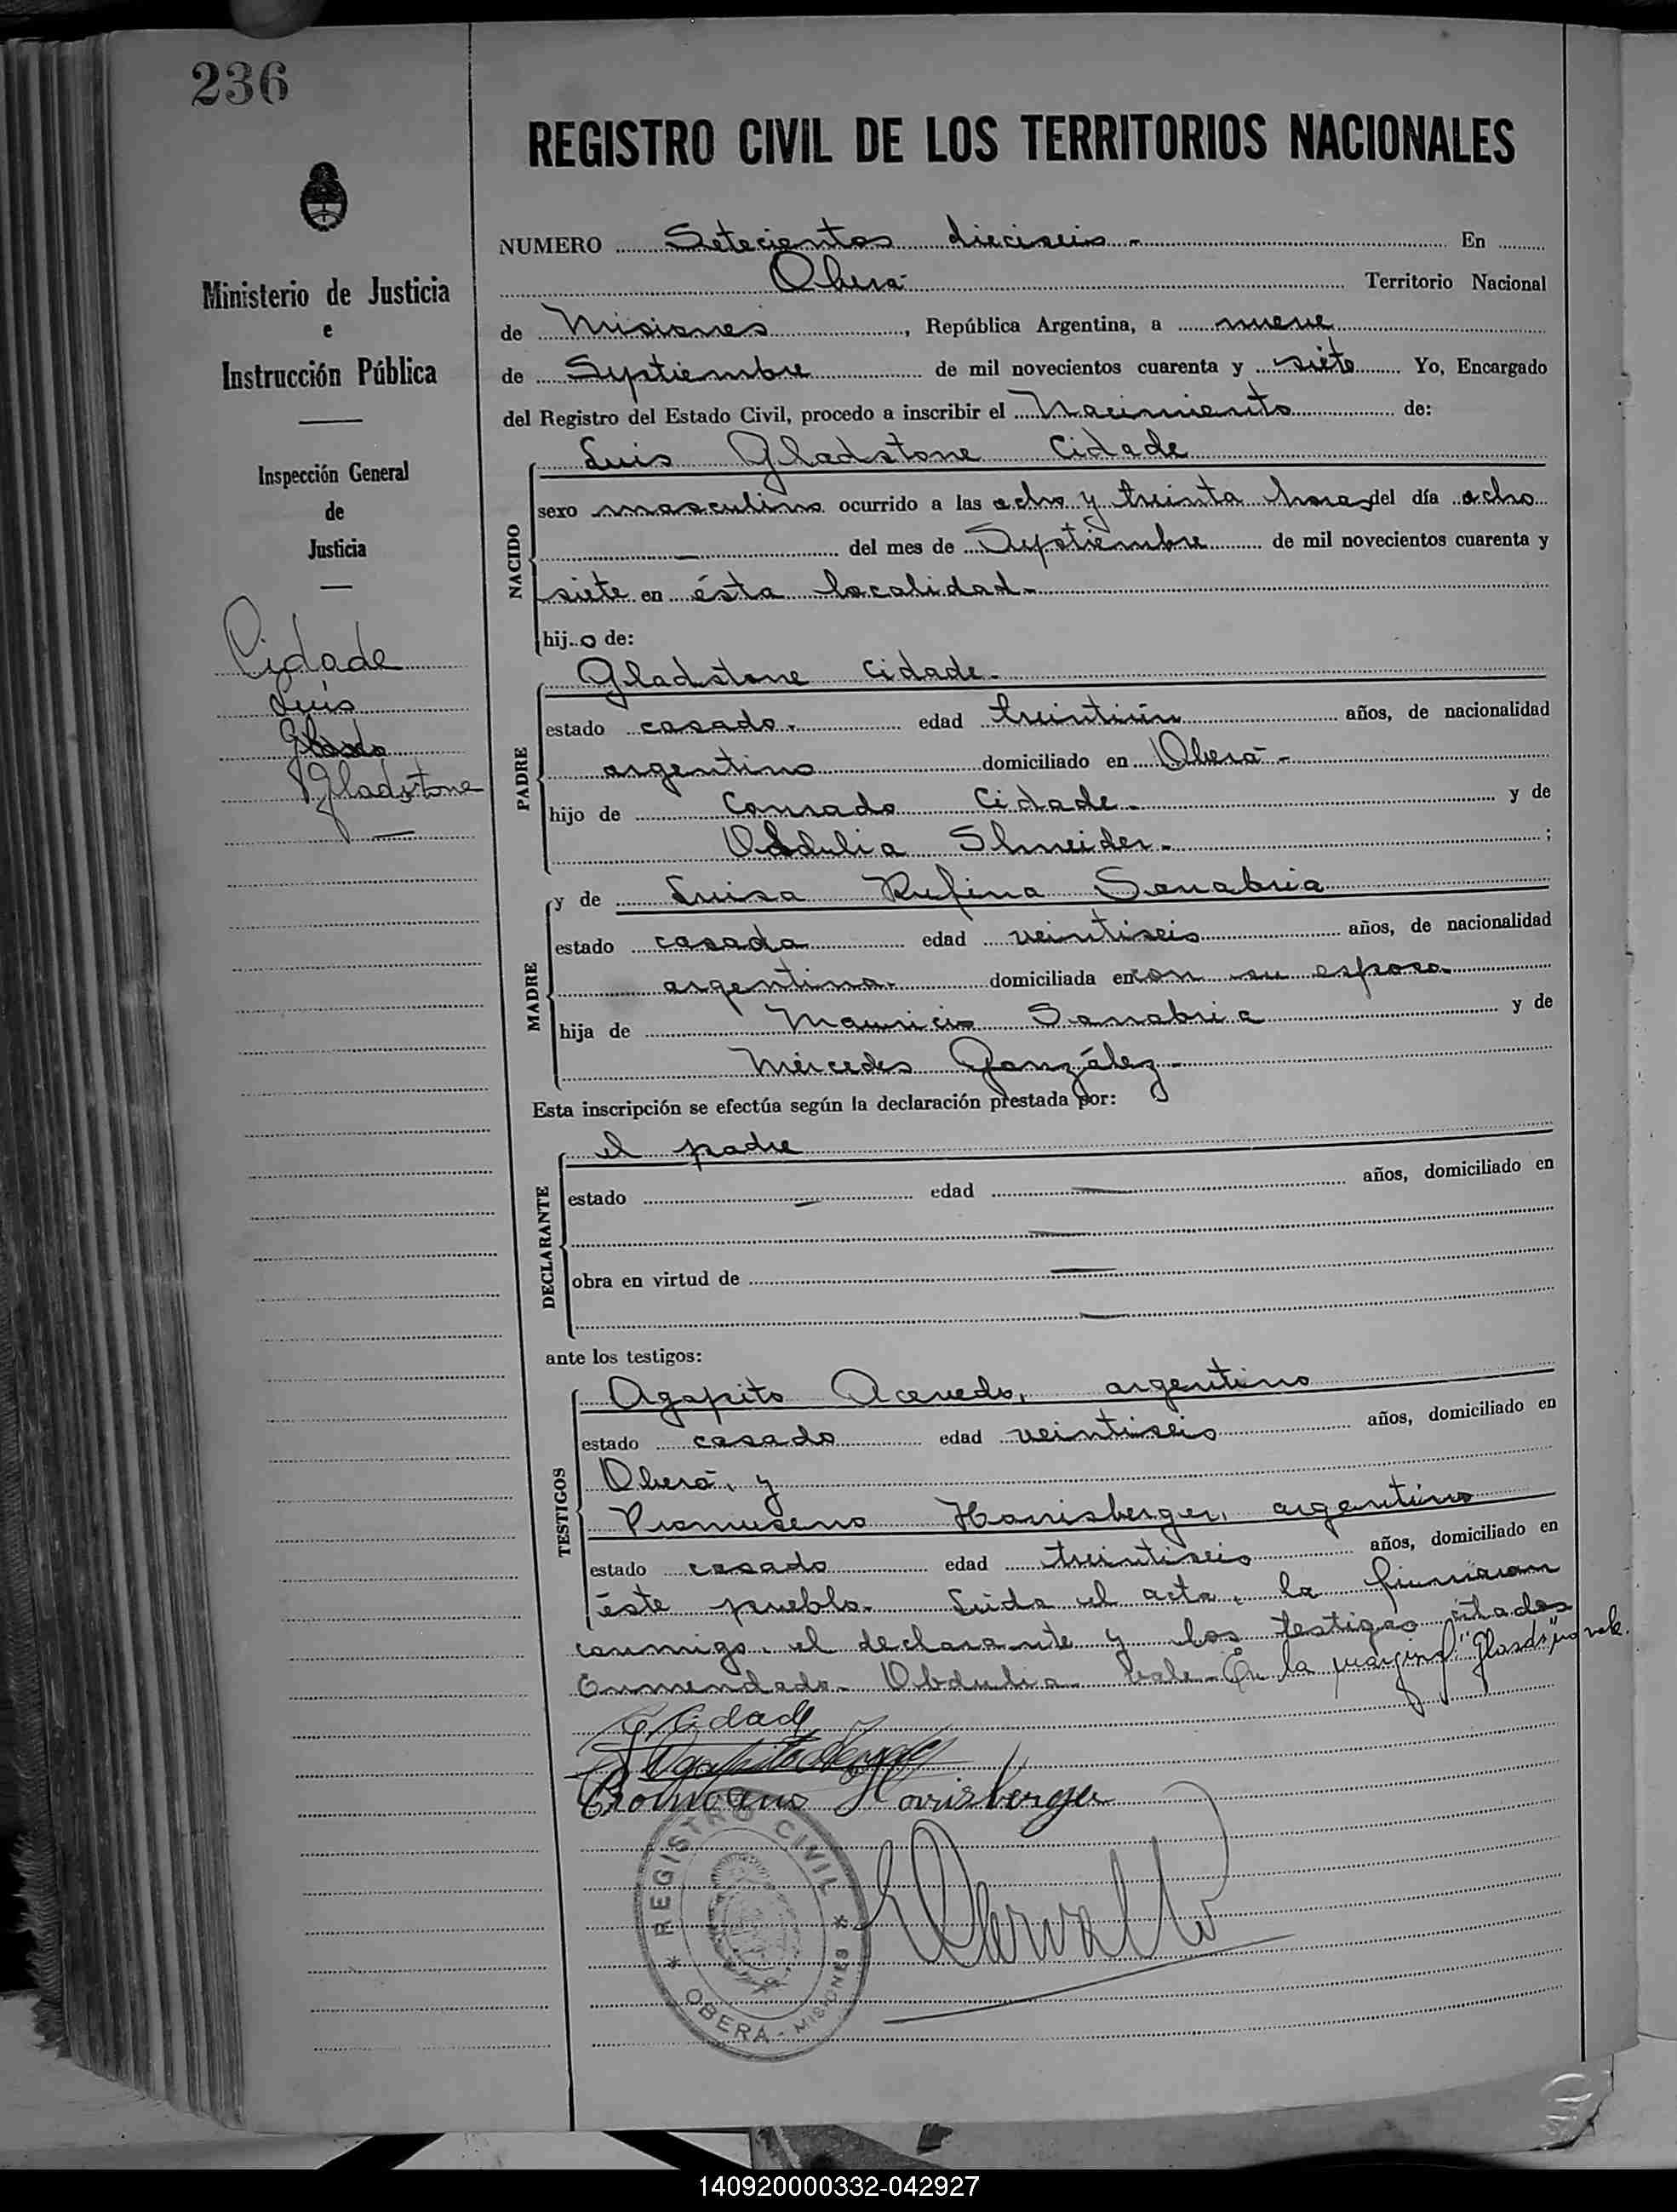 236
Ministerio de Justicia
e
Instrucción Pública
Inspección General
de
Justicia
Cidade
Luis
Glasdo
Gladstone
REGISTRO CIVIL DE LOS TERRITORIOS NACIONALES
NUMERO Setecientos dieciseis.- En
Oberá Territorio Nacional
de Misiones, República Argentina, a nueve
de Septiembre de mil novecientos cuarenta y siete Yo, Encargado
del Registro del Estado Civil, procedo a inscribir el Nacimiento de:
NACIDO
Luis Gladstone Cidade
sexo masculino ocurrido a las ocho y treinta horas del día ocho
del mes de Septiembre de mil novecientos cuarenta y
siete en ésta localidad.-
hijo de:
PADRE
Gladstone Cidade.-
estado casado.- edad treintiún años, de nacionalidad
argentino domiciliado en Oberá.-
hijo de Conrado Cidade.- y de
Obdulia Shneider.- ;
MADRE
y de Luisa Rufina Sanabria
estado casada edad veintiseis años, de nacionalidad
argentina.- domiciliada en con su esposo.-
hija de Mauricio Sanabria y de
Mercedes González.-
Esta inscripción se efectúa según la declaración prestada por:
DECLARANTE
el padre
estado edad años, domiciliado en
obra en virtud de
ante los testigos:
TESTIGOS
Agapito Acevedo, argentino
estado casado edad veintiseis años, domiciliado en
Oberá, y
Harrisberger, argentino
estado casado edad treintiseis años, domiciliado en
éste pueblo.- Leida el acta, la firmaron
conmigo, el declarante y los testigos citados
Enmendado- Obdulia. Vale- En la marginal "Glasdo" no vale.
G. Cidade
Harrisberger
REGISTRO CIVIL
OBERA - MISIONES
140920000332-042927